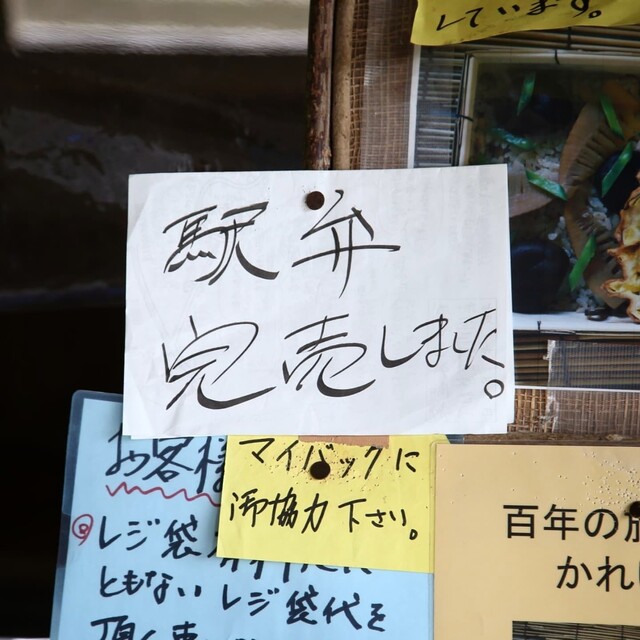 しています。
駅弁
完売しました。
お客様
レジ袋
ともない レジ袋代を
マイバックに
御協力下さい。
百年の
かれい